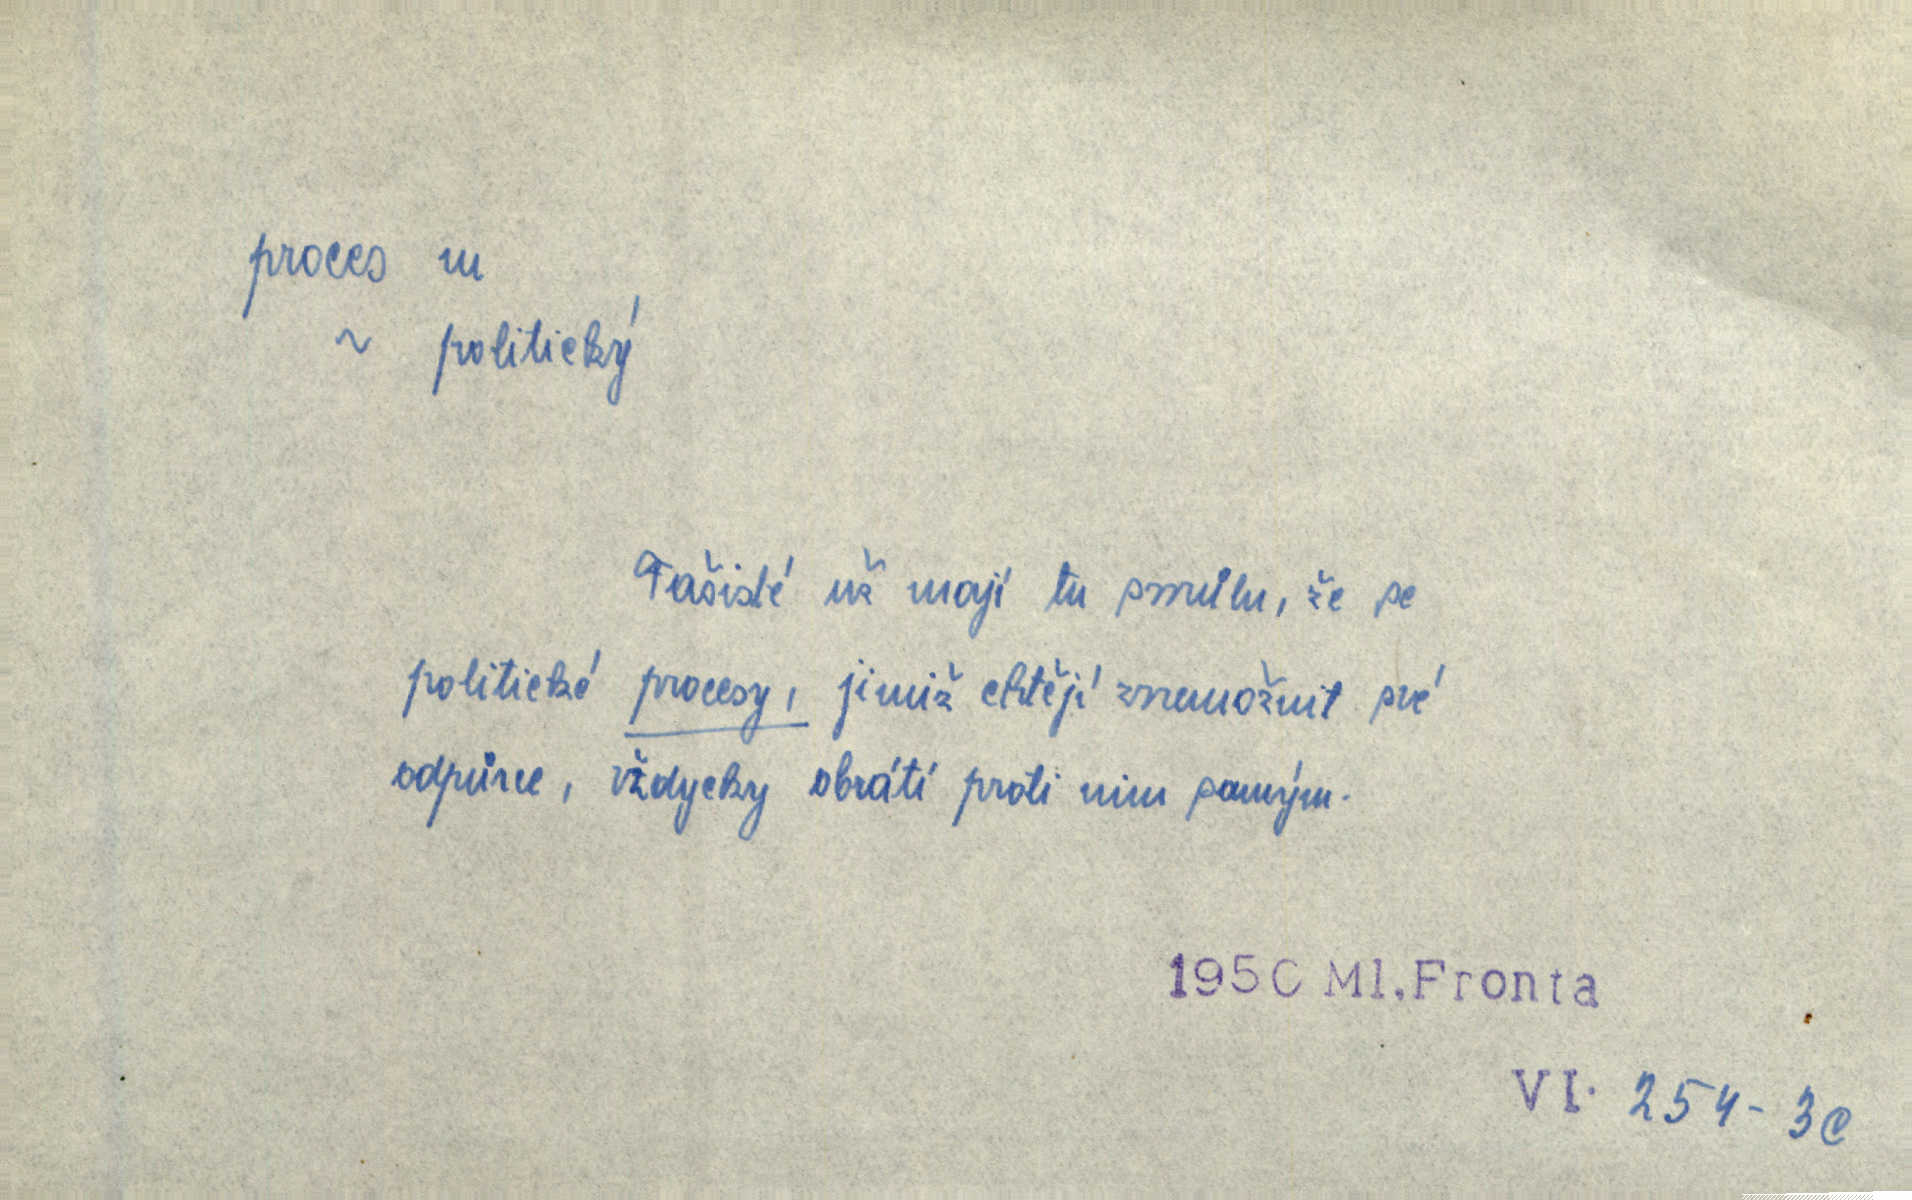 proces m
~ politický
Fašisté už mají tu smůlu, že se
politické procesy, jimiž chtějí znemožnit své
odpůrce, vždycky obrátí proti nim samým.
1950 Ml.Fronta
VI. 254-3c